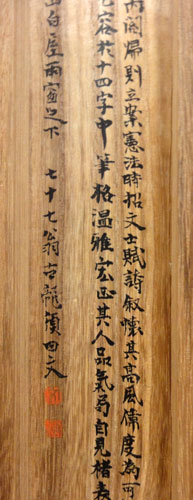 閣歸則立案憲法時招文士賦詩叙懷其高風偉度為可
容於十四字中筆格温雅宏正其人品氣局自見楮表
白屋雨窗之下 七十七翁